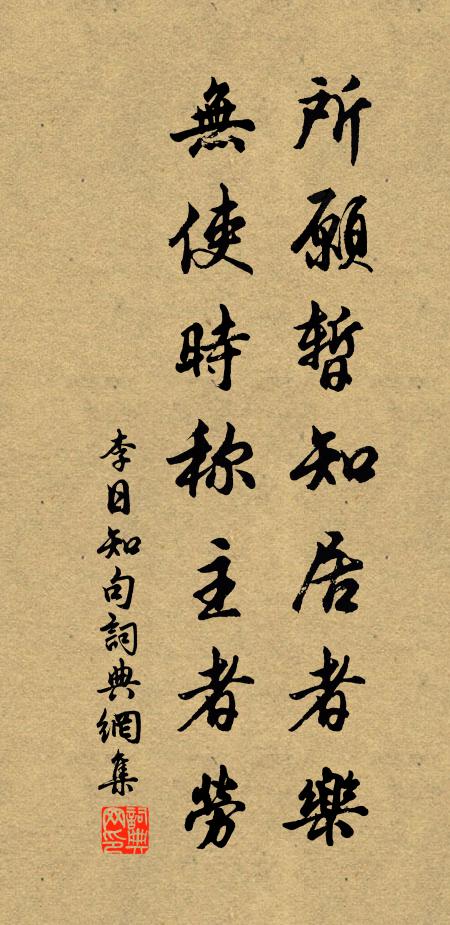 所願暫知居者樂
無使時称主者勞
李日知句詞典網集
詞典网印